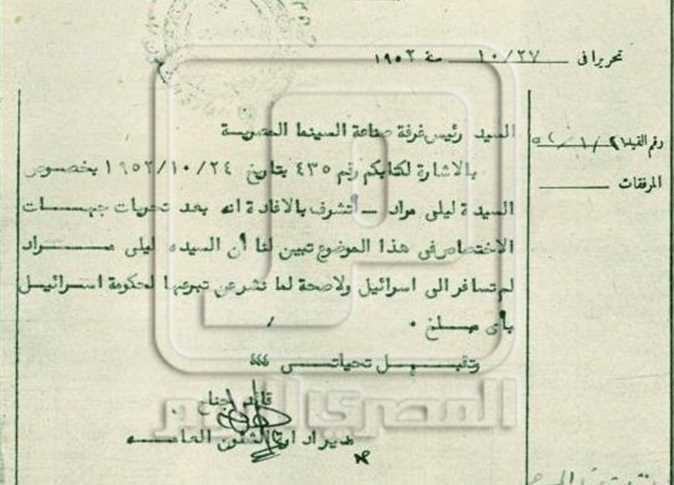 تحريرا فى ١٠/٢٧ سنة ١٩٥٢
رقم القيد
المرفقات
السيد رئيس غرفة صناعة السينما المصرية
بالاشارة لكتابكم رقم ٤٣٥ بتاريخ ١٩٥٢/١٠/٢٤ بخصوص
السيدة ليلى مراد — أتشرف بالافادة انه بعد تحريات جهات
الاختصاص فى هذا الموضوع تبين لنا أن السيده ليلى مراد
لم تسافر الى اسرائيل ولا صحة لما نشر عن تبرعها لحكومة اسرائيل
بأى مبلغ ٠
وتقبل تحياتى ،،،
قائد جناح
مدير ادارة الشئون العامه
المصري اليوم